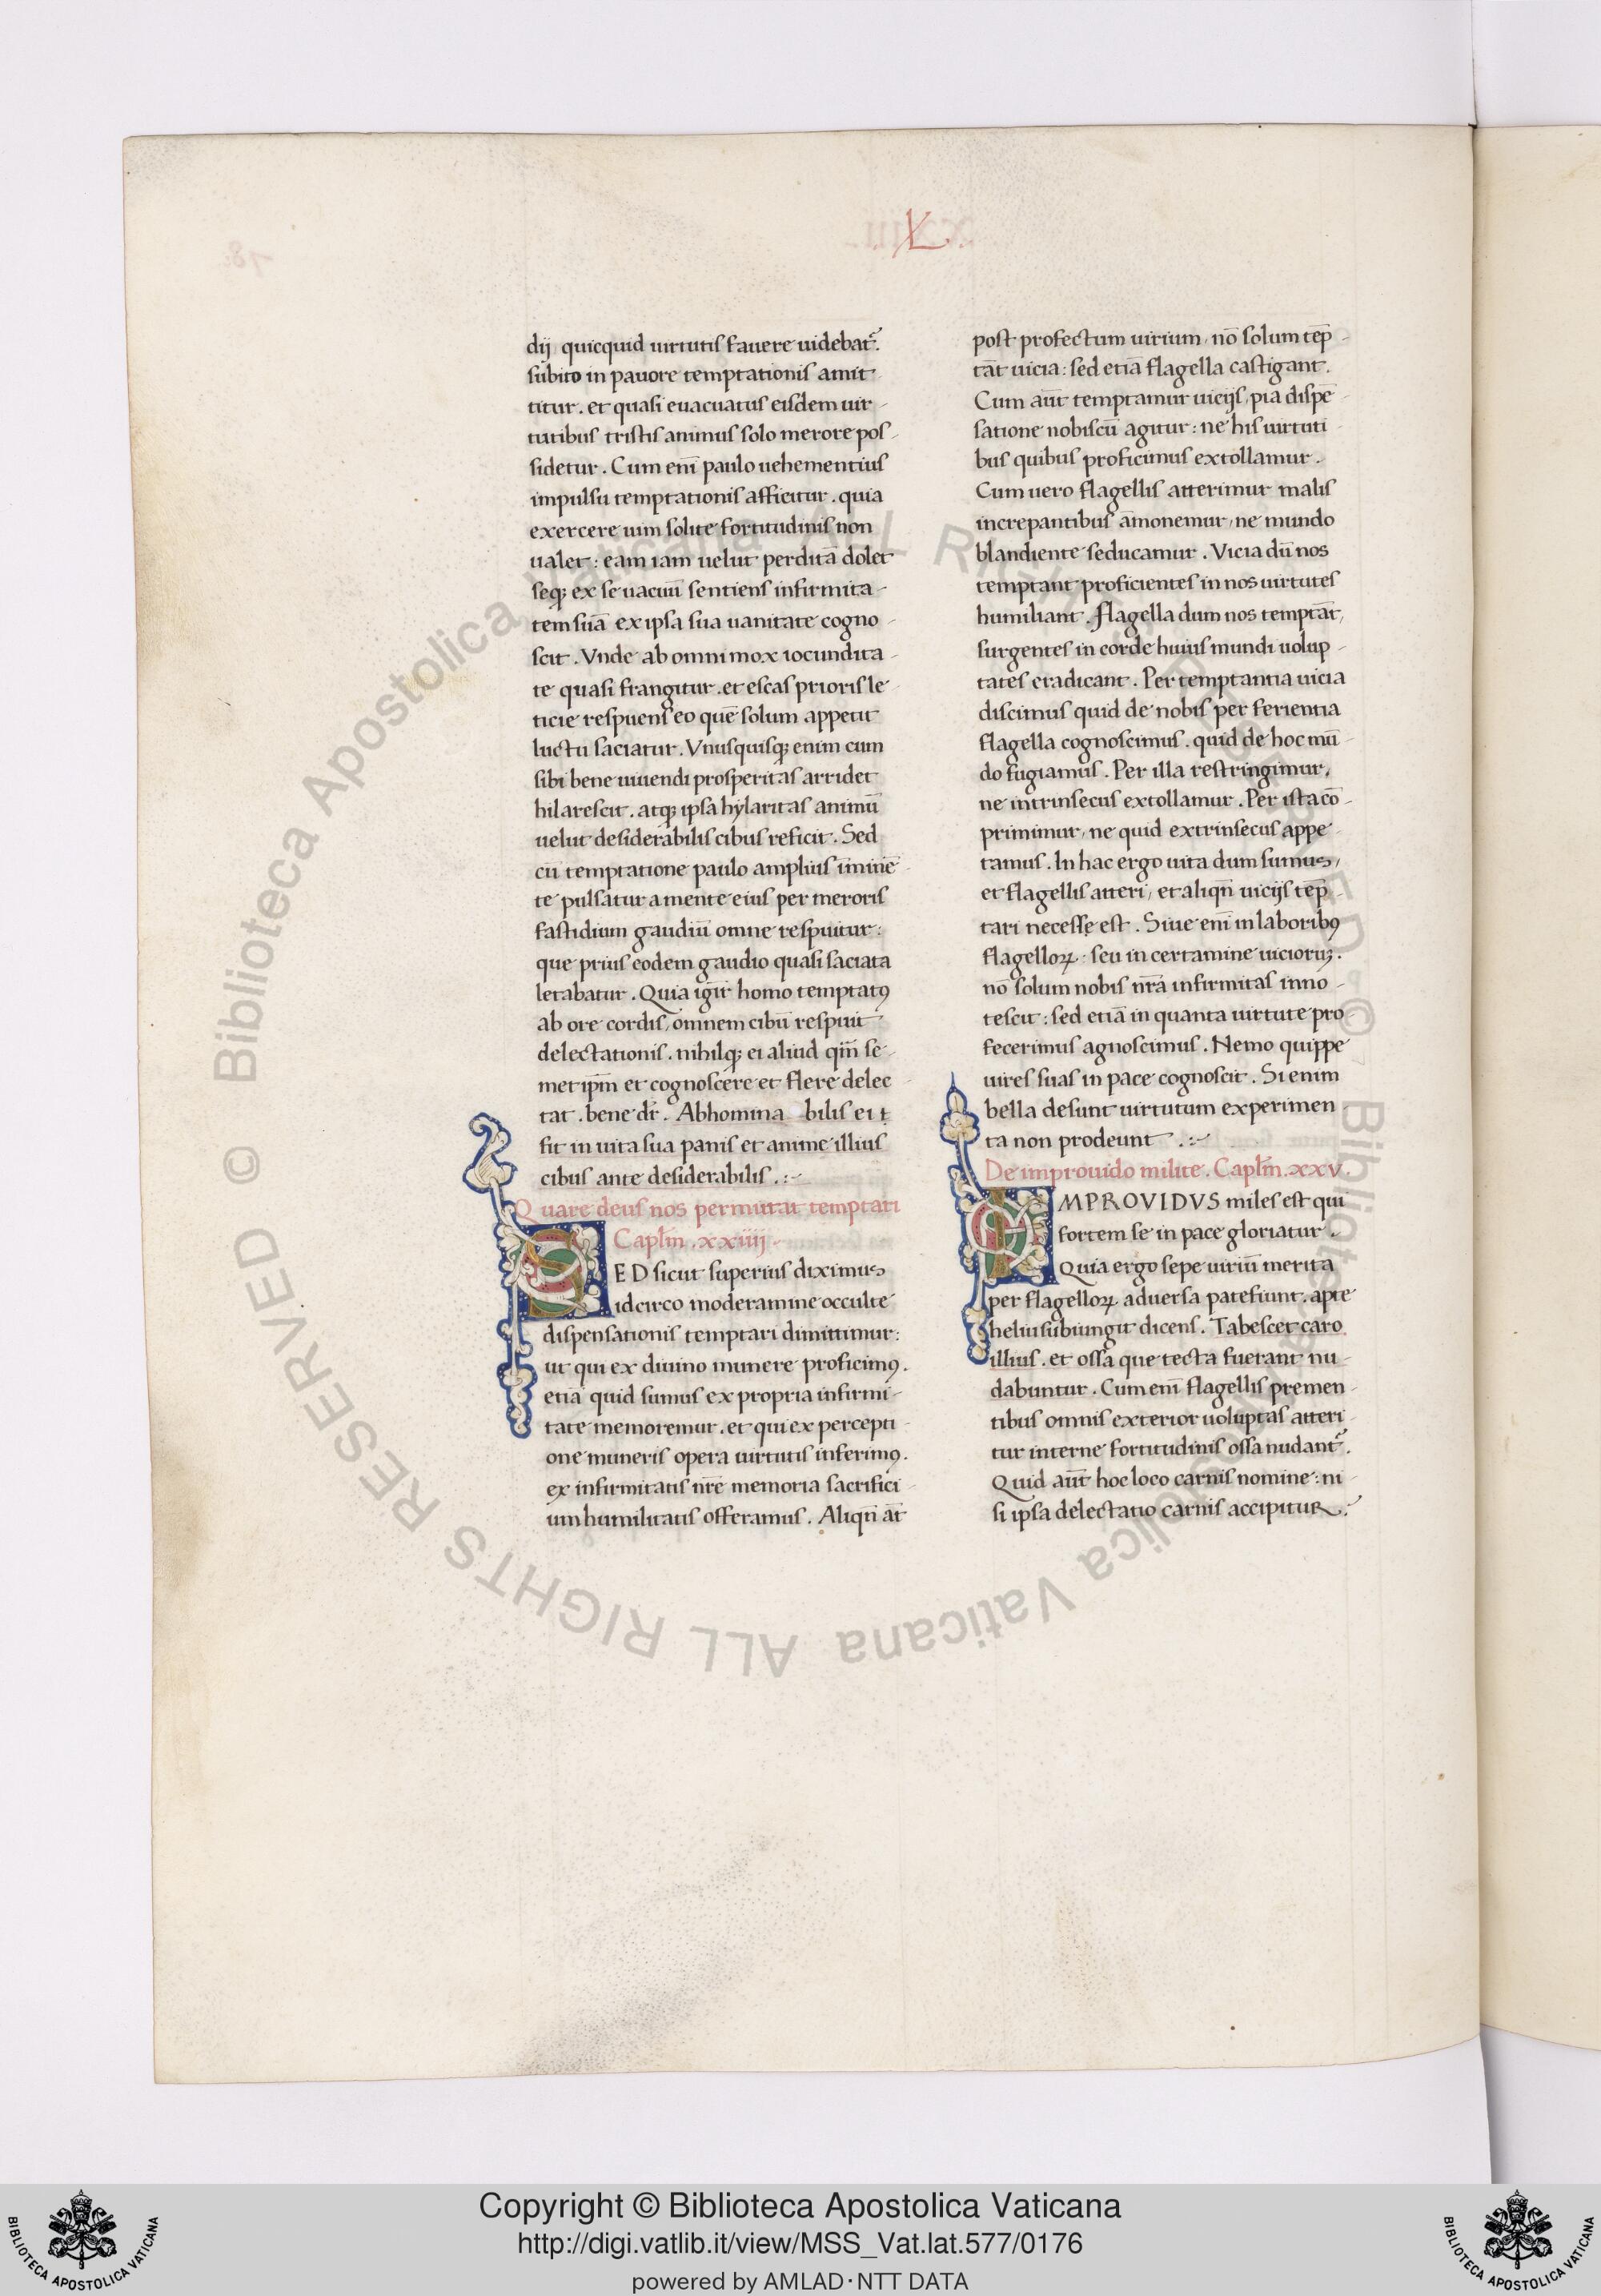 L
dij quicquid uirtutis fauere uidebat᷑.
subito in pauore temptationis amit
titur . et quasi euacuatus eisdem uir-
tutibus tristis animus solo merore pos-
sidetur . Cum eni᷑ paulo uehementius
impulsu temptationis afficitur . quia
exercere uim solite fortitudinis non
ualet : eam iam uelut perditā dolet
seq; ex se uacuū sentiens infirmita-
tem suā ex ipsa sua uanitate cogno-
scit . Vnde ab omni mox iocundita-
te quasi frangitur . et escas prioris le-
ticie respuens eo quē solum appetit
luctu saciatur . Vnusquisq; enim cum
sibi bene uiuendi prosperitas arridet
hilarescit . atq; ipsa hylaritas animū
uelut desiderabilis cibus reficit . Sed
cū temptatione paulo amplius īminē
te pulsatur a mente eius per meroris
fastidium gaudiū omne respuitur :
que prius eodem gaudio quasi saciata
letabatur . Quia igit̄ homo temptatꝰ
ab ore cordis, omnem cibū respuit
delectationis . nihilq; ei aliud qm̄ se-
met ipm̄ et cognoscere et flere delec
tat . bene dr̄ . Abhomina bilis ei t
fit in uita sua panis et anime illius
cibus ante desiderabilis . :~
Quare deus nos permittat temptari
Caplm̄ . xxiiij
SED sicut superius diximus
idcirco moderamine occulte
dispensationis temptari dimittimur :
ut qui ex diuino munere proficimꝰ .
etiā quid sumus ex propria infirmi-
tate memoremur . et qui ex percepti-
one muneris opera uirtutis inferimꝰ .
ex infirmitatis nr̄e memoria sacrifici
um humilitatis offeramus . Aliqn̄ at̄
post profectum uirium, nō solum tēp-
tāt uicia : sed etiā flagella castigant .
Cum aūt temptamur uicijs, pia dispē-
satione nobiscū agitur : ne his uirtuti-
bus quibus proficimus extollamur .
Cum uero flagellis atterimur malis
increpantibus āmonemur, ne mundo
blandiente seducamur . Vicia dū nos
temptant proficientes in nos uirtutes
humiliant . flagella dum nos temptāt,
surgentes in corde huius mundi uolup-
tates eradicant . Per temptantia uicia
discimus quid de nobis per ferientia
flagella cognoscimus . quid de hoc mū-
do fugiamus . Per illa restringimur,
ne intrinsecus extollamur . Per ista cō-
primimur, ne quid extrinsecus appe-
tamus . In hac ergo uita dum sumus,
et flagellis atteri, et aliqn̄ uicijs tēp-
tari necesse est . Siue eni᷑ in laboribꝰ
flagelloꝝ : seu in certamine uicioru; .
nō solum nobis nr̄a infirmitas inno-
tescit : sed etiā in quanta uirtute pro
fecerimus agnoscimus . Nemo quippe
uires suas in pace cognoscit . Si enim
bella desunt uirtutum experimen
ta non prodeunt . :~
De improuido milite . Caplm̄ . xxv .
IMPROVIDVS miles est qui
fortem se in pace gloriatur .
Quia ergo sepe uiriū merita
per flagelloꝝ aduersa patefiunt . apte
heliu subiungit dicens . Tabescet caro
illius . et ossa que tecta fuerant nu-
dabuntur . Cum eni᷑ flagellis premen-
tibus omnis exterior uoluptas atteri-
tur interne fortitudinis ossa nudant᷑ .
Quid aūt hoc loco carnis nomine : ni-
si ipsa delectatio carnis accipitur .
© Biblioteca Apostolica Vaticana ALL RIGHTS RESERVED © Biblioteca Apostolica Vaticana ALL RIGHTS RESERVED
Copyright © Biblioteca Apostolica Vaticana
http://digi.vatlib.it/view/MSS_Vat.lat.577/0176
powered by AMLAD·NTT DATA
BIBLIOTECA APOSTOLICA VATICANA
BIBLIOTECA APOSTOLICA VATICANA